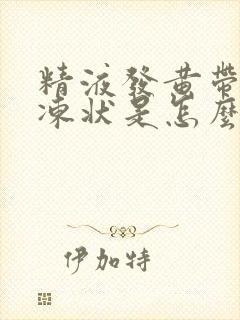 精液發黃帶
凍狀是怎麼
伊加特